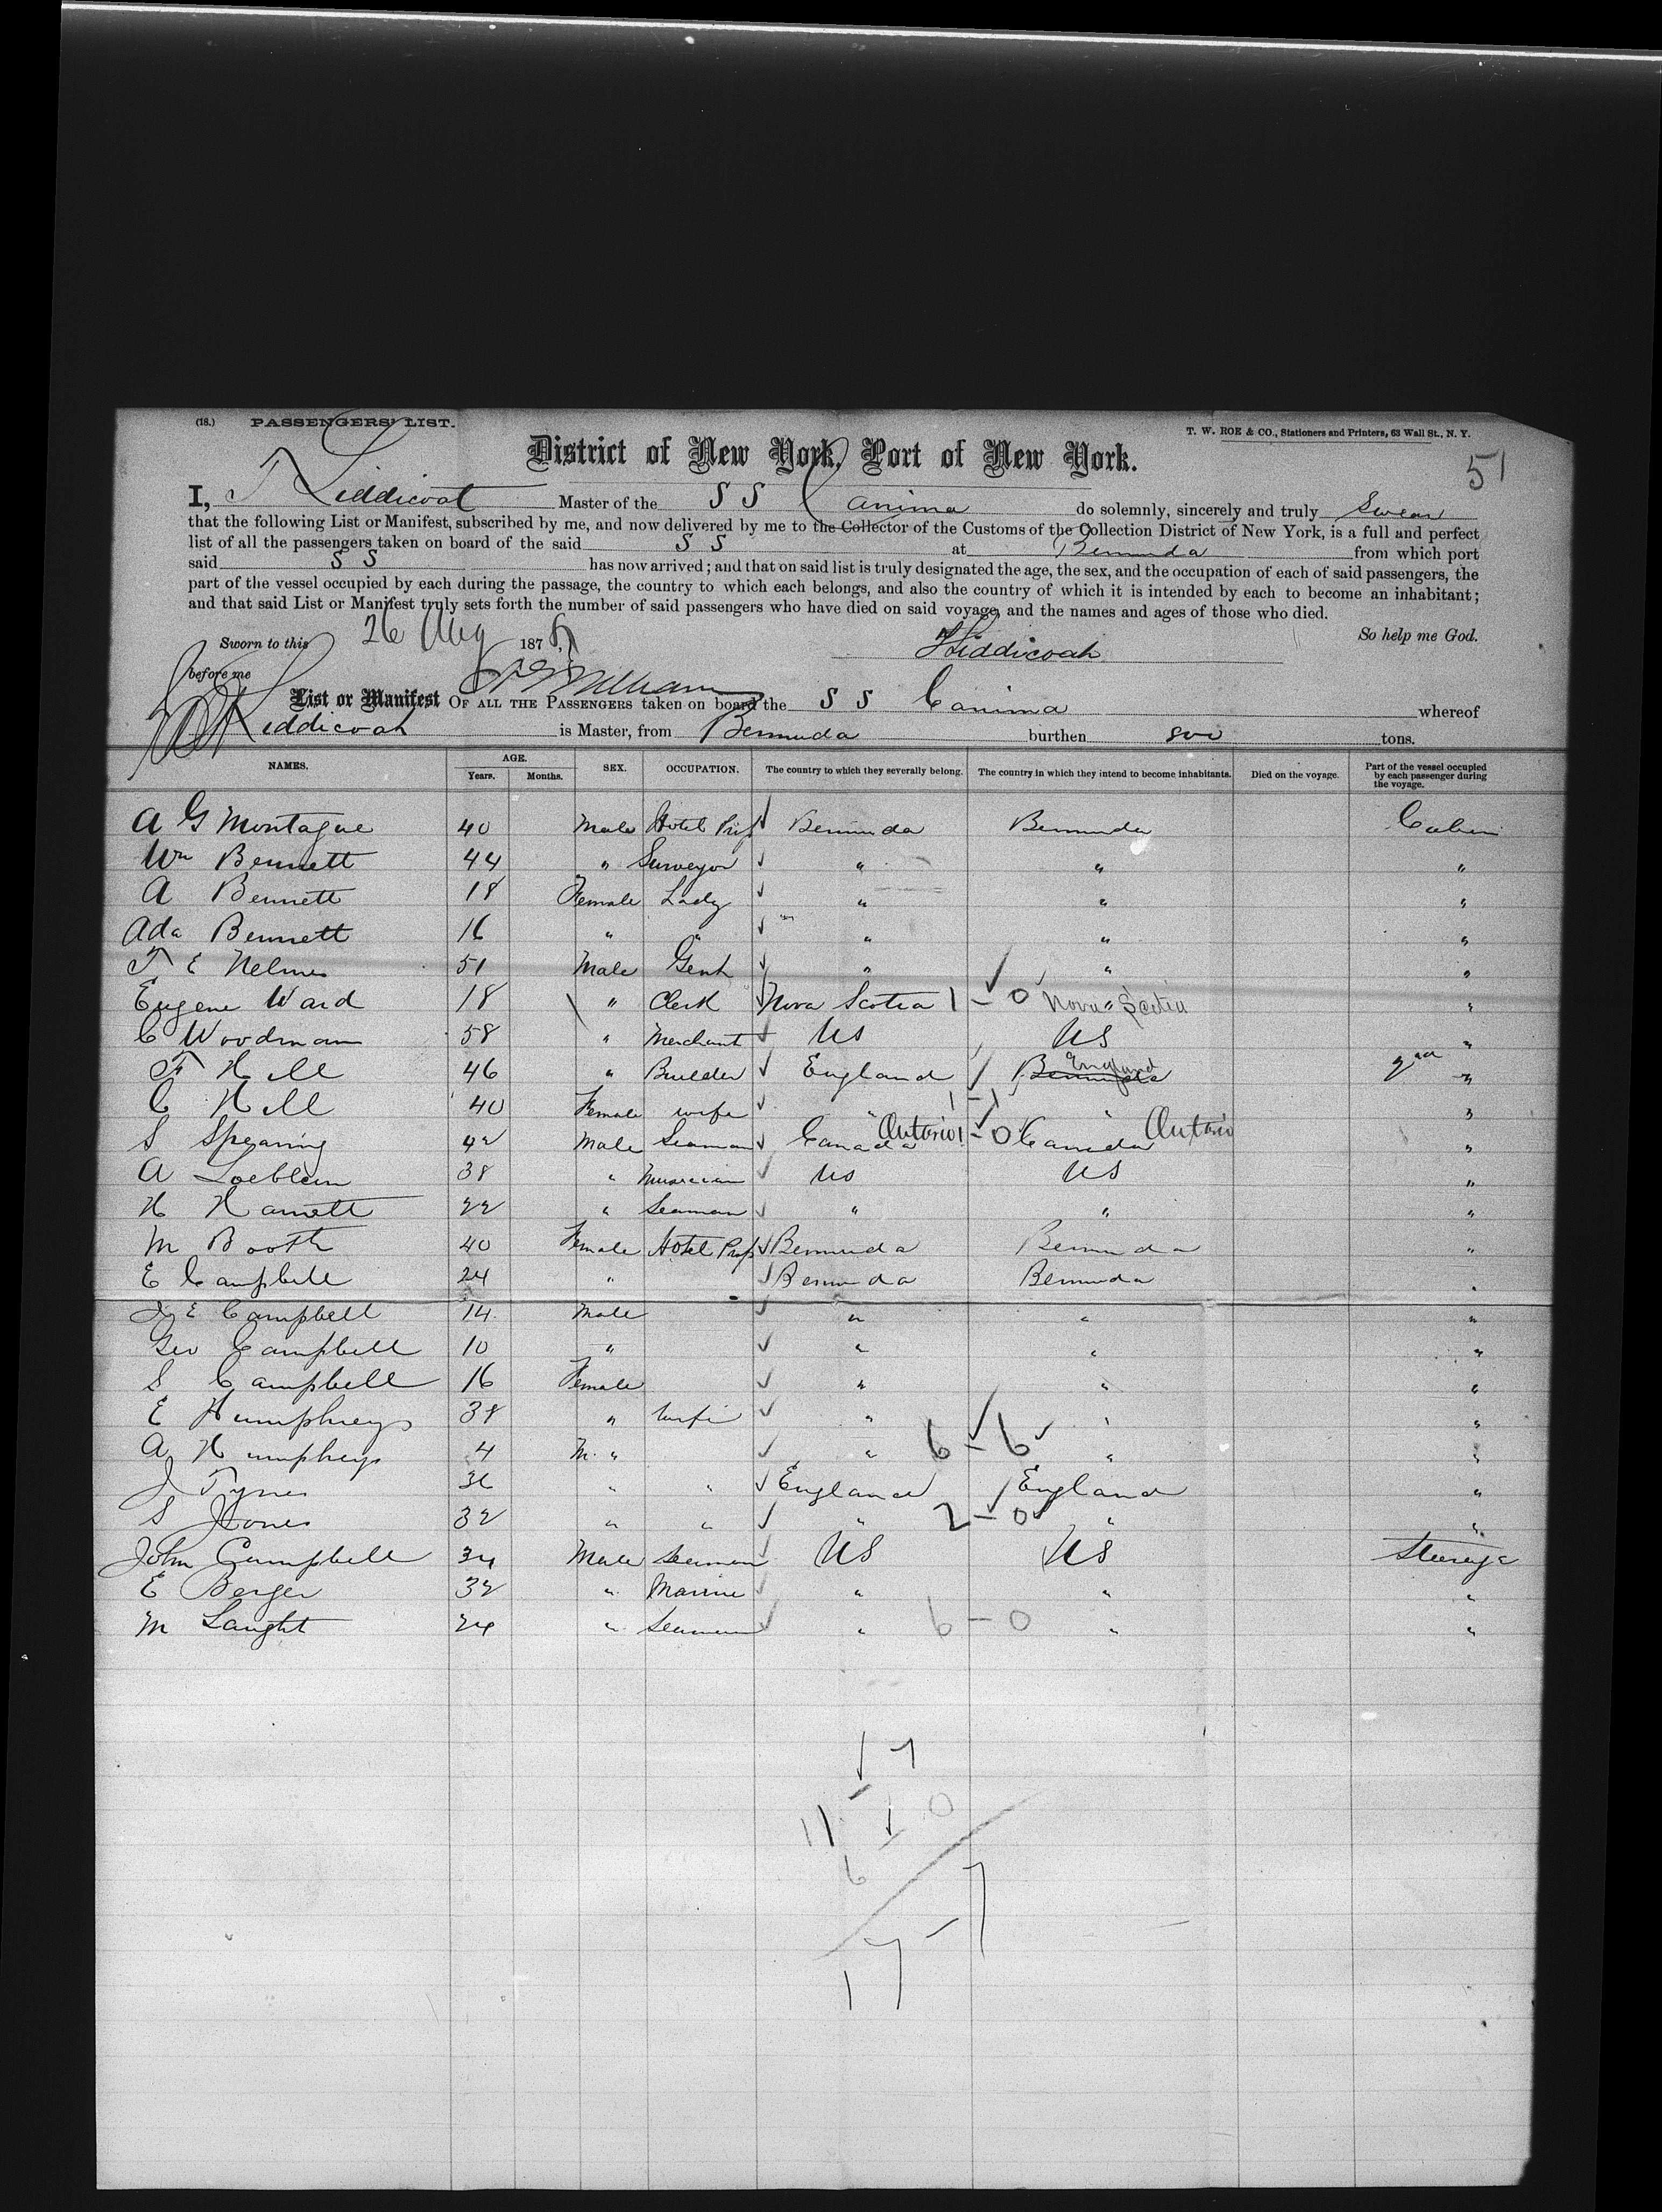 (18.) PASSENGERS' LIST.
T. W. ROE & CO., Stationers and Printers, 63 Wall St., N. Y.
District of New York, Port of New York.
51
I, T Liddicoat Master of the S S Canima do solemnly, sincerely and truly Swear
that the following List or Manifest, subscribed by me, and now delivered by me to the Collector of the Customs of the Collection District of New York, is a full and perfect
list of all the passengers taken on board of the said S S at Bermuda from which port
said S S has now arrived; and that on said list is truly designated the age, the sex, and the occupation of each of said passengers, the
part of the vessel occupied by each during the passage, the country to which each belongs, and also the country of which it is intended by each to become an inhabitant;
and that said List or Manifest truly sets forth the number of said passengers who have died on said voyage, and the names and ages of those who died.
Sworn to this 26 Aug 187 So help me God.
Liddicoat
before me
List or Manifest OF ALL THE PASSENGERS taken on board the S S Canima whereof
Liddicoat is Master, from Bermuda burthen 800 tons.
NAMES. AGE. Years. Months. SEX. OCCUPATION. The country to which they severally belong. The country in which they intend to become inhabitants. Died on the voyage. Part of the vessel occupied by each passenger during the voyage.
A G Montague 40 Male Hotel Prop Bermuda Bermuda Cabin
Wm Bennett 44 " Surveyor " " "
A Bennett 18 Female Lady " " "
Ada Bennett 16 " " " " "
T E Nelmes 51 Male Gent " " "
Eugene Ward 18 " Clerk Nova Scotia 1 - 0 Nova Scotia "
C Woodman 58 " Merchant US US "
F Hill 46 " Builder England Bermuda England 2nd "
C Hill 40 Female wife " 1 - 1 " "
S Spearing 42 Male Seaman Canada Ontario 1 - 0 Canada Ontario "
A Loeblein 38 " Musician US US "
H Harnett 22 " Seaman " " "
M Booth 40 Female Hotel Prop Bermuda Bermuda "
E Campbell 24 " Bermuda Bermuda "
J E Campbell 14 Male " " "
Geo Campbell 10 " " " "
S Campbell 16 Female " " "
E Humphreys 38 " wife " " "
A Humphreys 4 M. " " 6 - 6 " "
J Tynes 36 " " England England "
S Jones 32 " " " 2 - 0 " "
John Campbell 34 Male Seaman US US Steerage
E Berger 32 " Marine " " "
M Laught 24 " Seaman " 6 - 0 " "
17
11 1 0
6
17 - 7